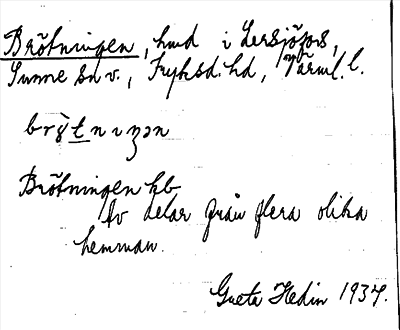 Brötningen, hmd i Lersjöfors,
Sunne sn v., Fryksd. hd, Värml. l.
Brötningen hb
av delar från flera olika
hemman.
Greta Hedin 1937.